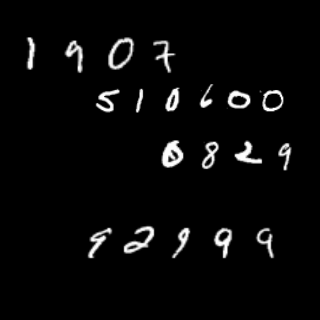 1907
510600
0829
92999